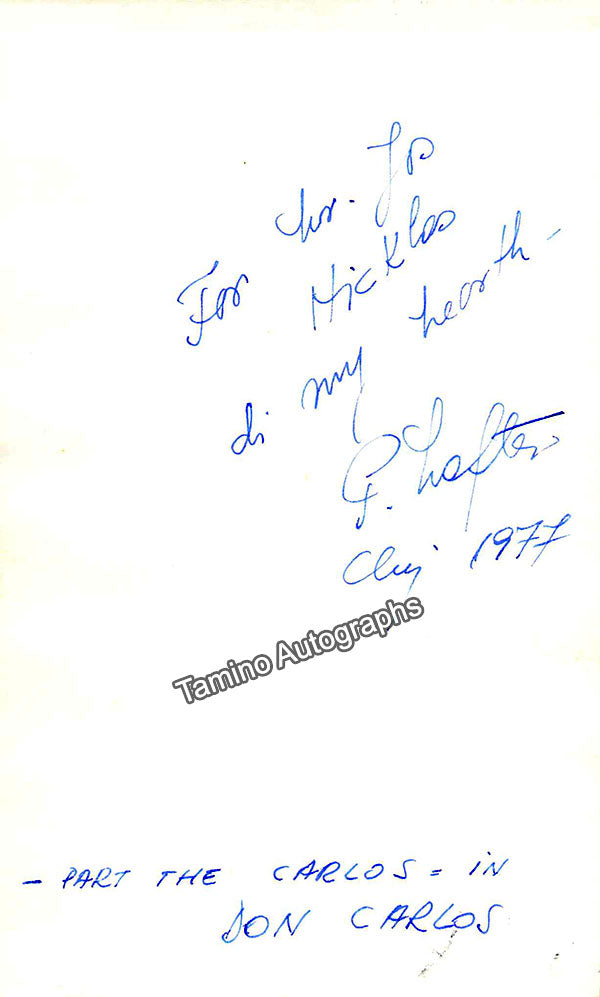 For hr. Jos
Nicklas
di my hearth -
Cluj 1977
Tamino Autographs
- PART THE CARLOS = IN
DON CARLOS